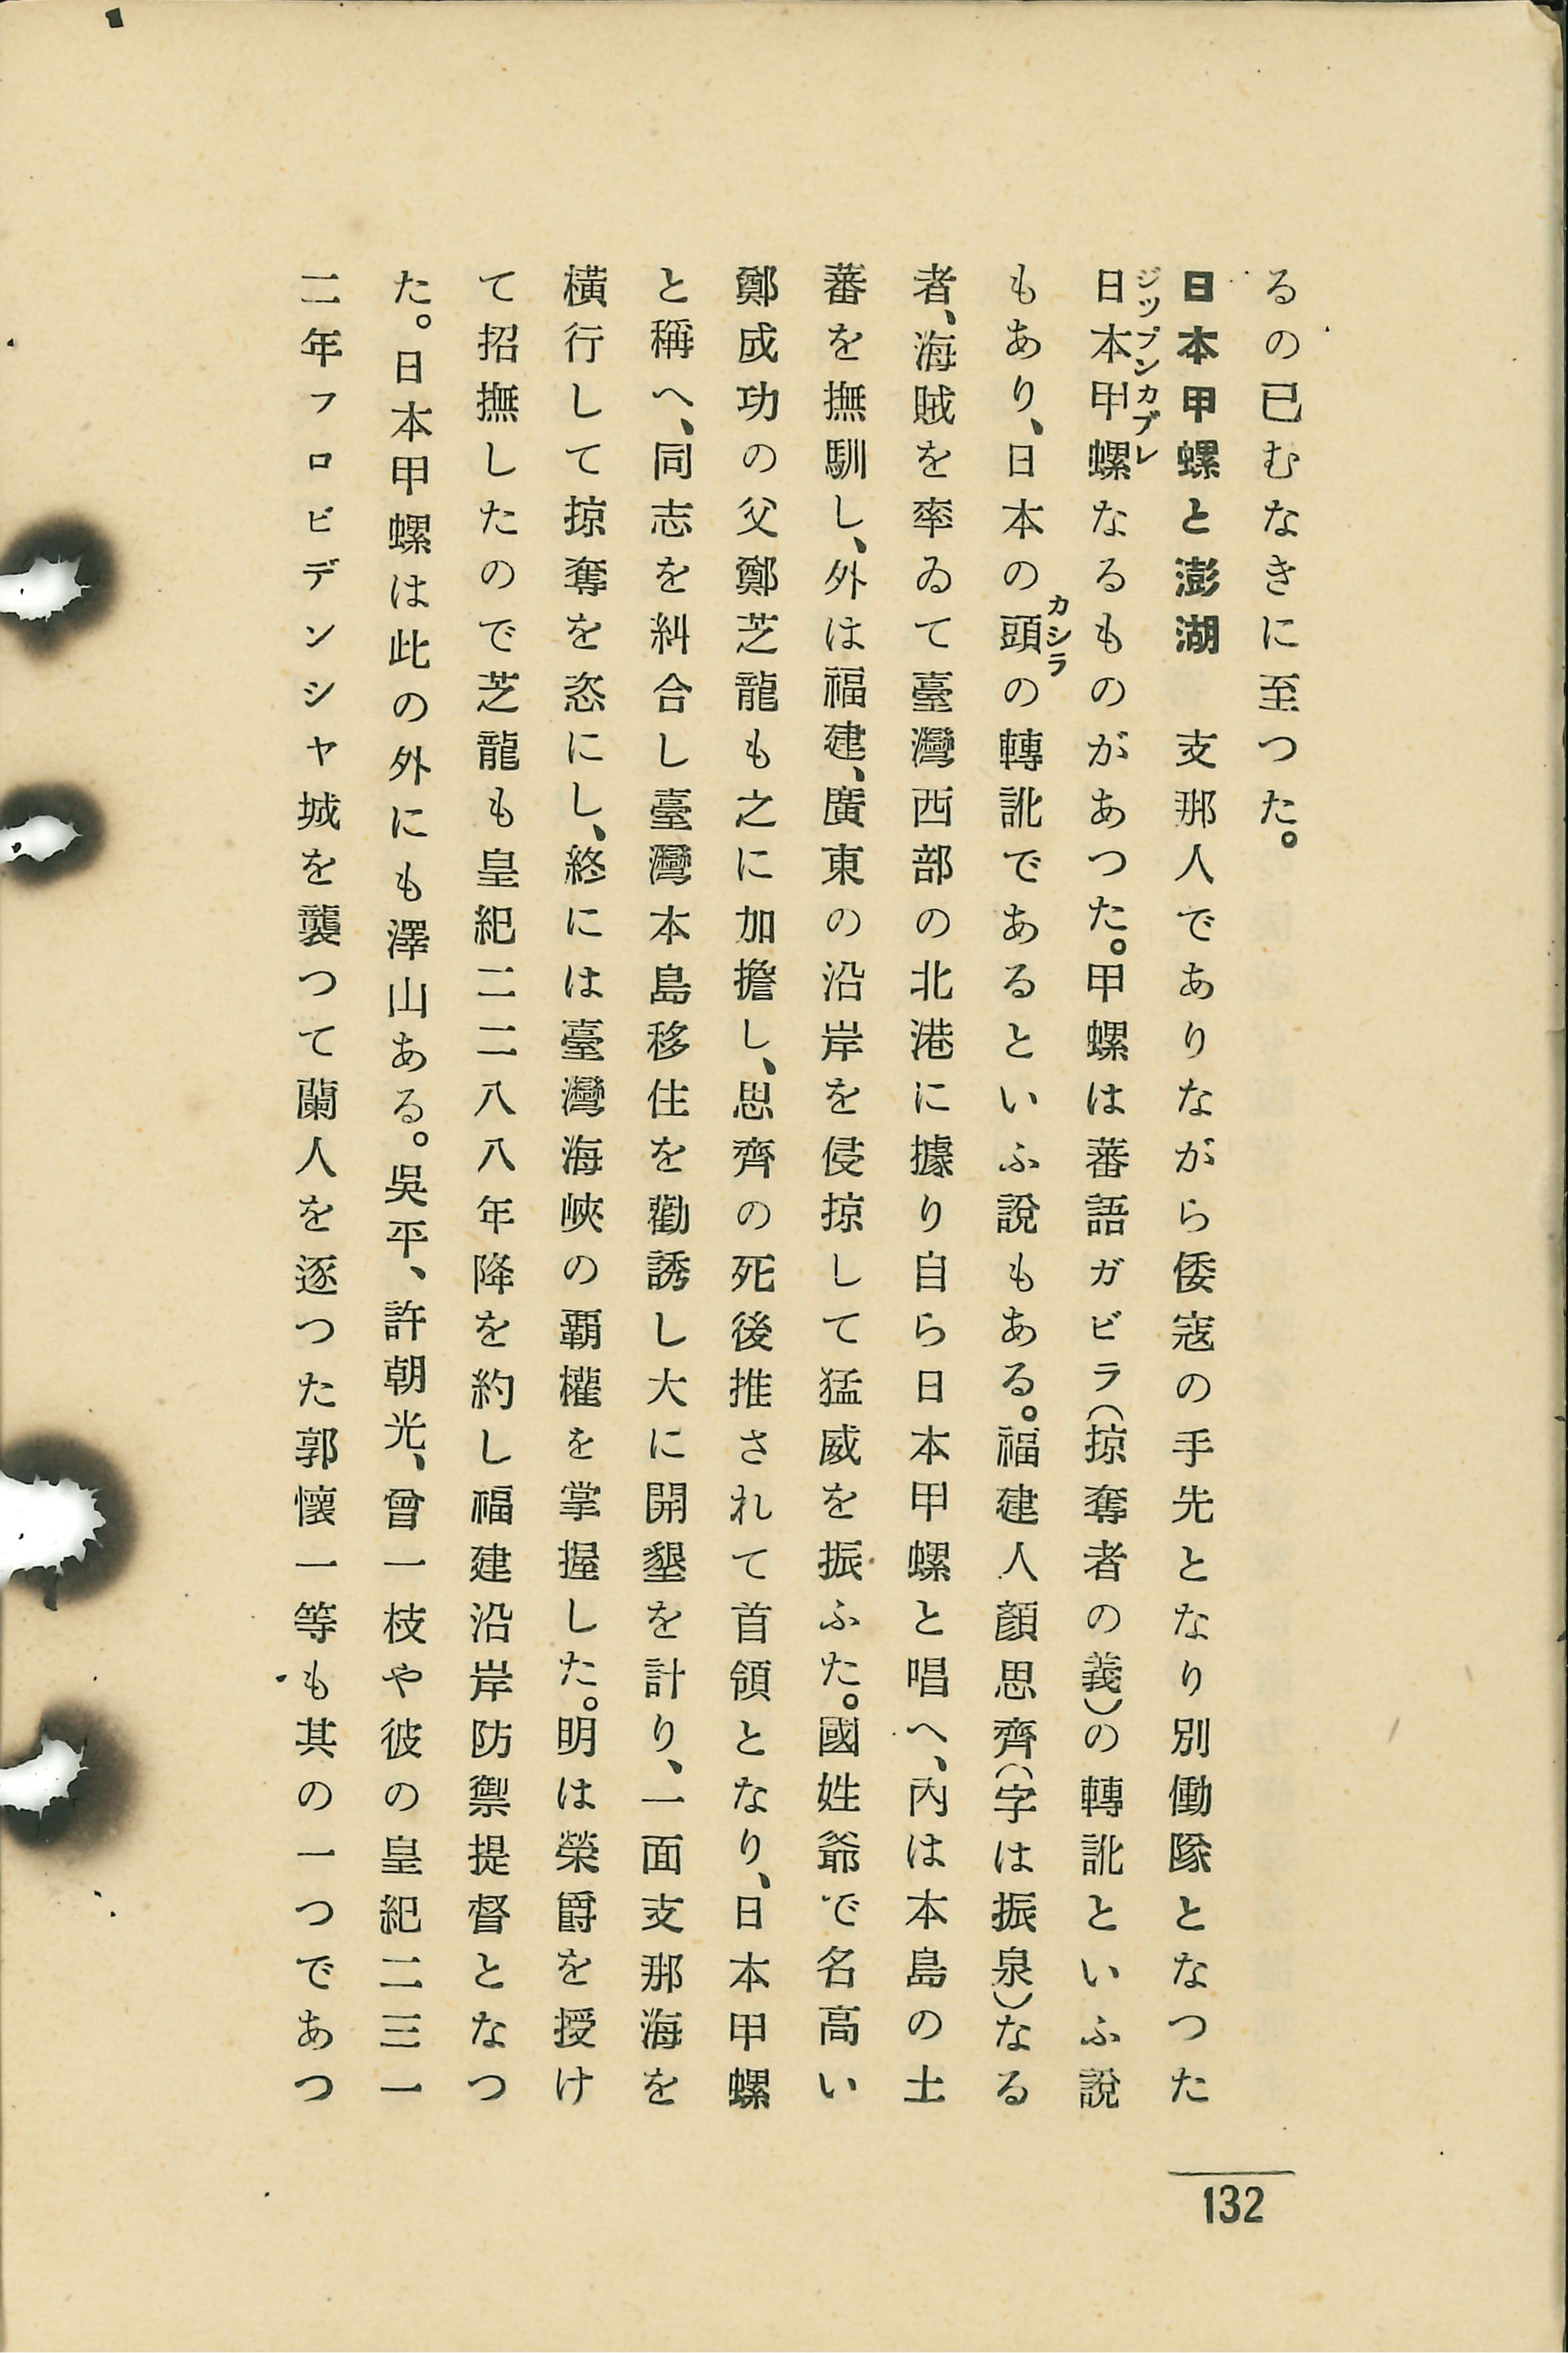 るの已むなきに至つた。
日本甲螺と澎湖　支那人でありながら倭寇の手先となり別働隊となつた
ジツプンカブレ
日本甲螺なるものがあつた。甲螺は蕃語ガビラ(掠奪者の義)の轉訛といふ説
カシラ
もあり、日本の頭の轉訛であるといふ説もある。福建人顏思齊(字は振泉)なる
者、海賊を率ゐて臺灣西部の北港に據り自ら日本甲螺と唱へ、內は本島の土
蕃を撫馴し、外は福建、廣東の沿岸を侵掠して猛威を振ふた。國姓爺で名高い
鄭成功の父鄭芝龍も之に加擔し、思齊の死後推されて首領となり、日本甲螺
と稱へ、同志を糾合し臺灣本島移住を勸誘し大に開墾を計り、一面支那海を
橫行して掠奪を恣にし、終には臺灣海峽の覇權を掌握した。明は榮爵を授け
て招撫したので芝龍も皇紀二二八八年降を約し福建沿岸防禦提督となつ
た。日本甲螺は此の外にも澤山ある。吳平、許朝光、曾一枝や彼の皇紀二三一
二年フロビデンシヤ城を襲つて蘭人を逐つた郭懷一等も其の一つであつ
132